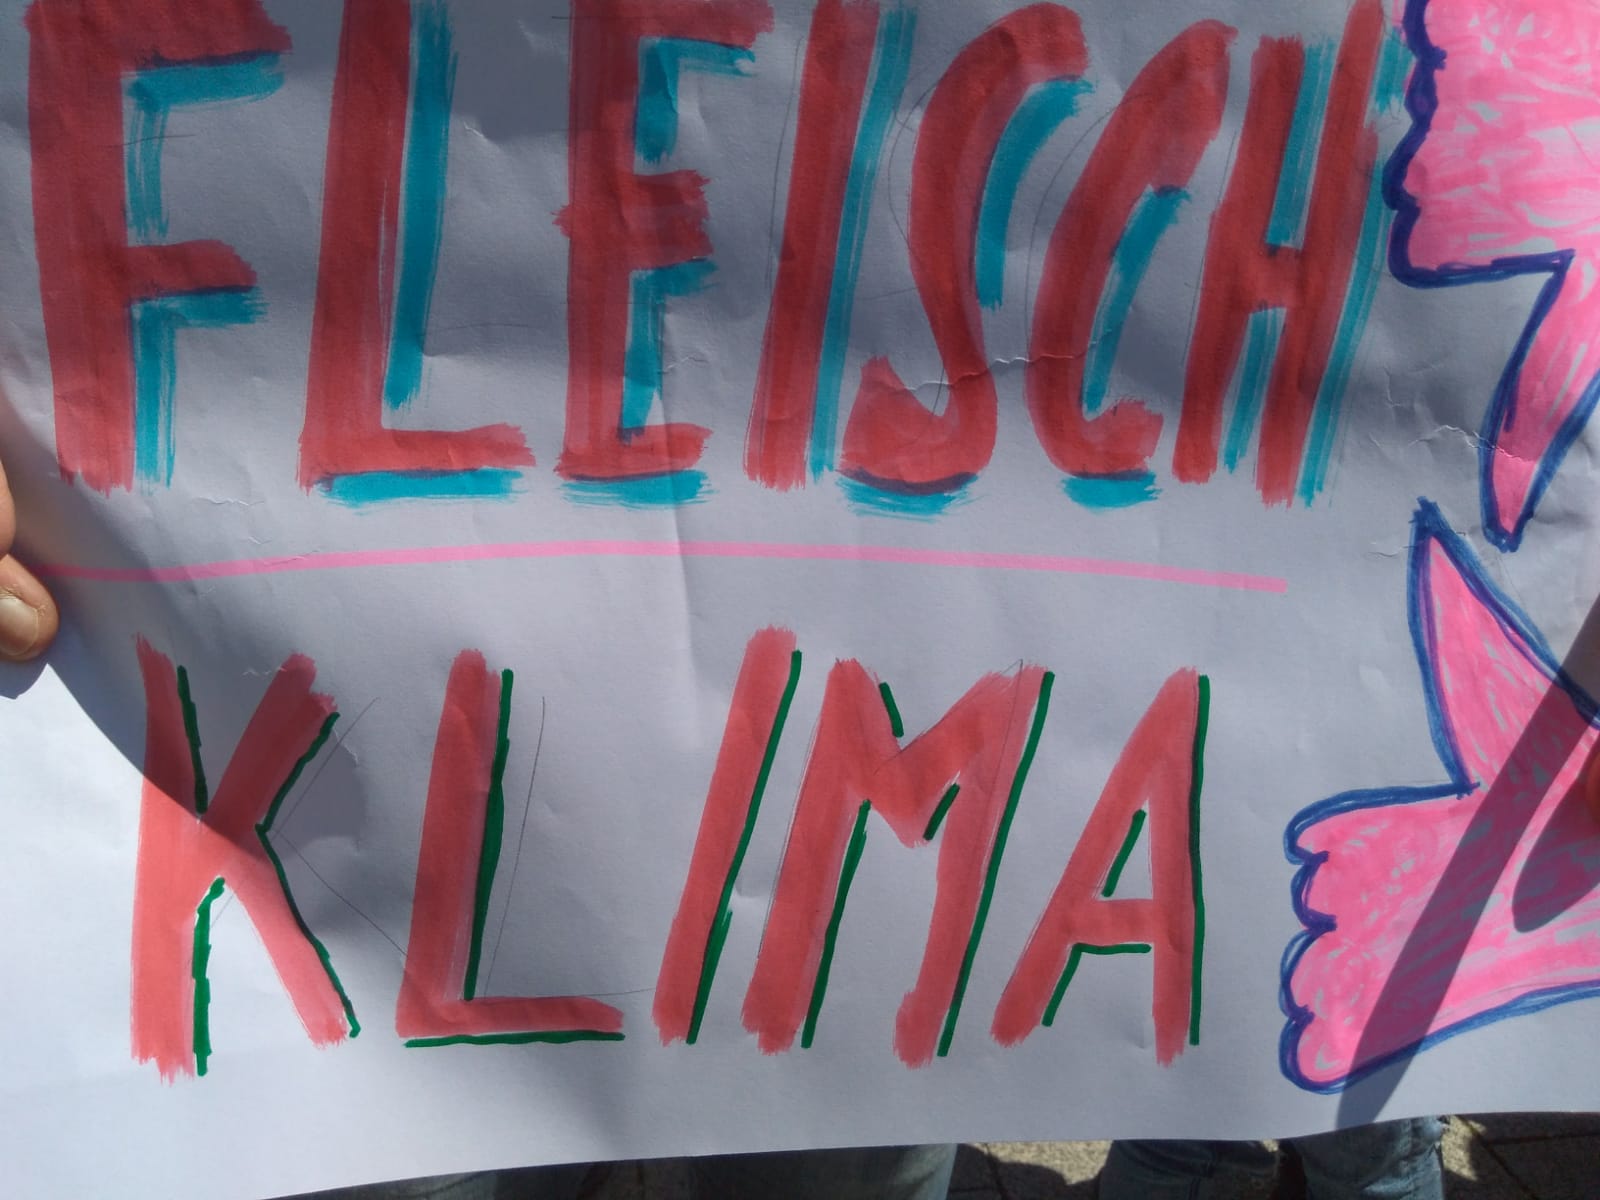 FLEISCH
KLIMA